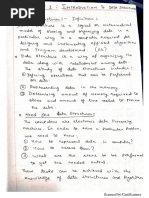 1 : INTRODUCTION TO DATA STRUCTURES
Data Structures :- Definition :-
Data structure is a logical or mathematical
model of storing and organizing data in a
particular way in a computer, required for
designing and implementing efficient algorithms
and Program development.
Data Structure is a way of organizing data
along with relationship among
the data.
Defining operations that can be performed
on data
Representing data in the memory.
Determining amount of memory required to
store and amount of time needed to process
the data.
Need for Data Structures :-
The computers are electronic data processing
machine. In order to solve a particular problem
we need to know :
1) How to represent data in computer?
2) How to access them?
3) What are the steps to be performed
to get the needed output.
These task can be achieved with the
knowledge of the data structures and algorithms
Scanned by CamScanner